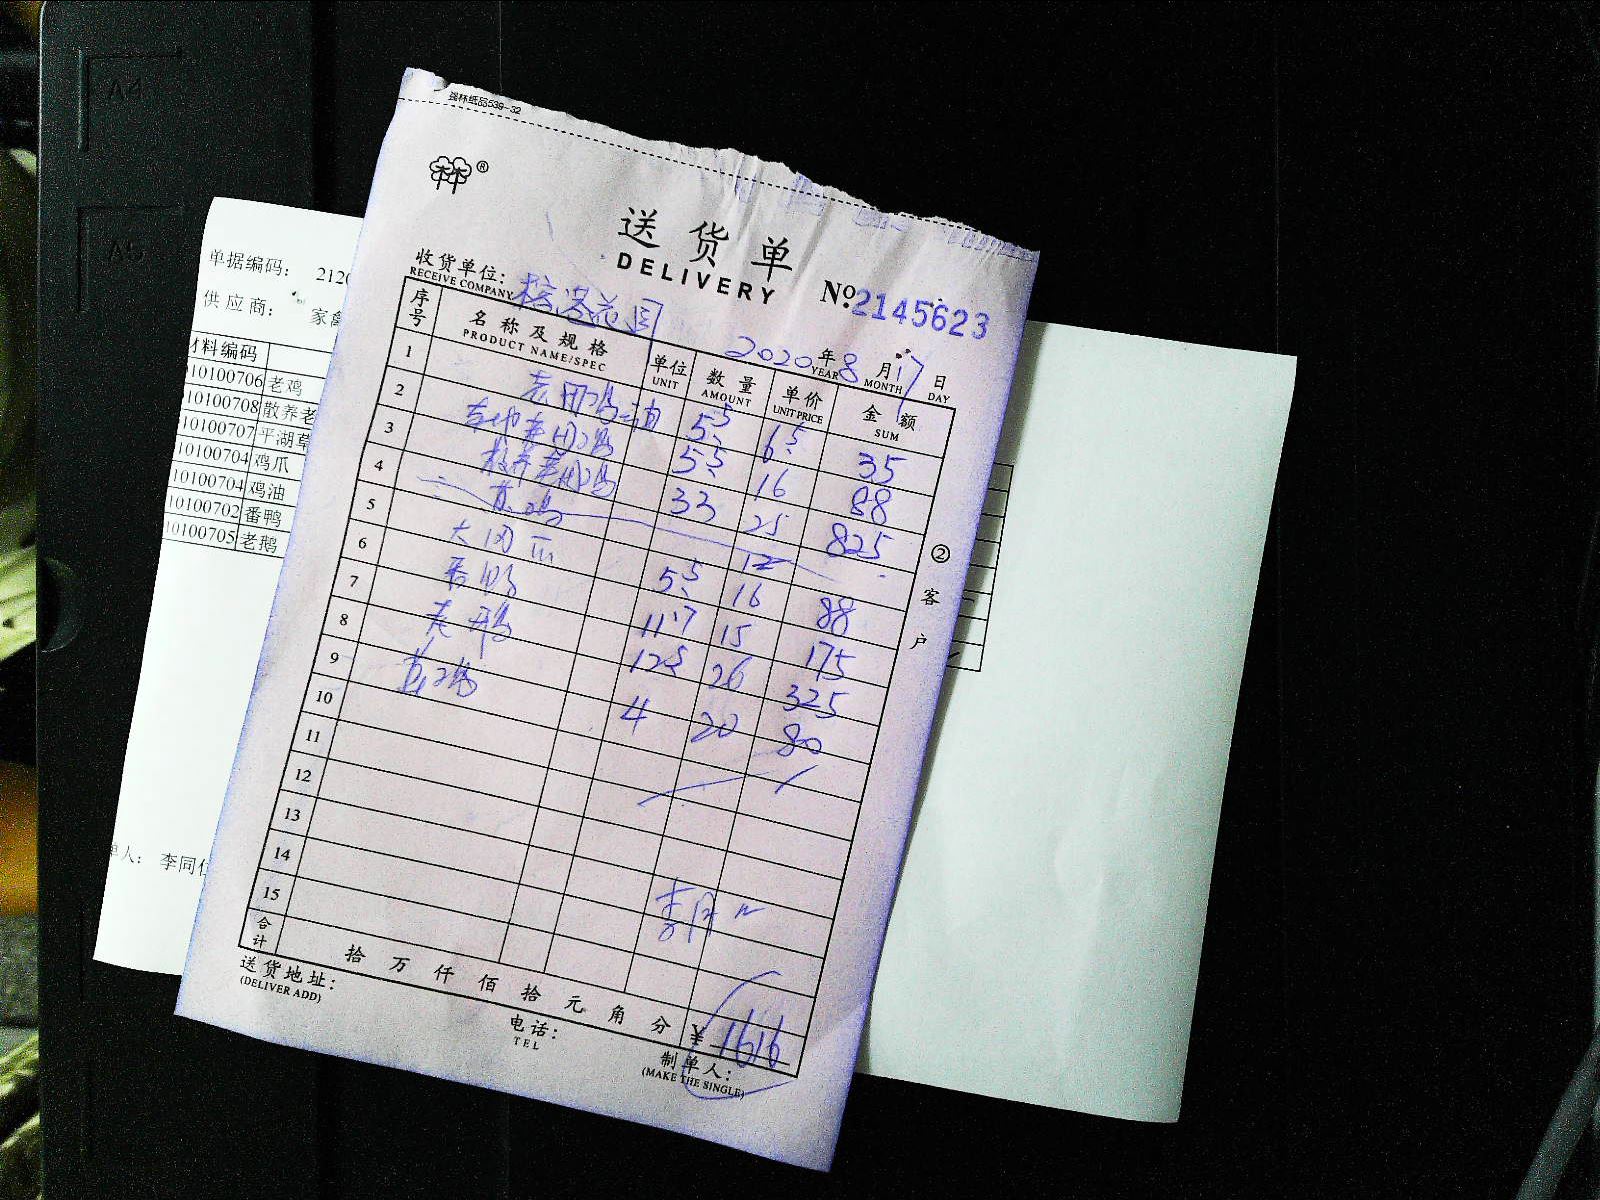 强林纸品539-32
林®
送货单
DELIVERY
收货单位:
RECEIVE COMPANY
№2145623
2020年8月17日
YEAR MONTH DAY
序号 名称及规格 单位 数量 单价 金额
PRODUCT NAME/SPEC UNIT AMOUNT UNIT PRICE SUM
1 5.5 6.5 35
2 5.5 16 88
3 33 25 825
4 12
5 5.5 16 88
6 11.7 15 175
7 12.5 26 325
8 4 20 80
9
10
11
12
13
14
15
合计 拾万仟佰拾元角分 ¥1616
送货地址:
(DELIVER ADD)
电话:
TEL
制单人:
(MAKE THE SINGLE)
②客户
单据编码: 2120
供应商: 家禽
材料编码
10100706 老鸡
10100708 散养老
10100707 平湖草
10100704 鸡爪
10100704 鸡油
10100702 番鸭
10100705 老鹅
单人: 李同仁
A4
A5